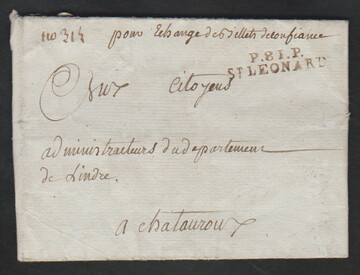 no 314
pour Echange de Billets de confiance
P.81.P.
ST LEONARD
Aux Citoyens
administracteurs du departement
de L'indre.
a chatauroux